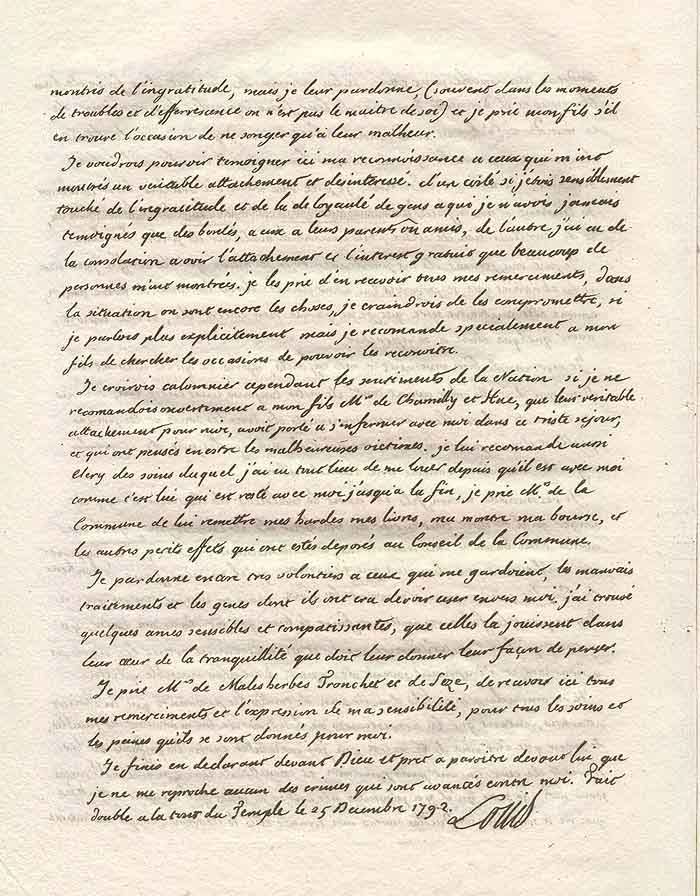 montrés de l'ingratitude, mais je leur pardonne, (souvent dans les moments
de troubles et d'effervescence on n'est pas le maitre de soi) et je prie mon fils s'il
en trouve l'occasion de ne songer qu'à leur malheur.
Je voudrois pouvoir temoigner ici ma reconnoissance a ceux qui m'ont
montrés un veritable attachement et desinteressé. d'un coté si j'etois sensiblement
touché de l'ingratitude et de la deloyauté de gens a qui je n'avois jamais
temoignés que des bontés, a eux a leurs parents ou amis, de l'autre j'ai eu de
la consolation a voir l'attachement et l'interest gratuit que beaucoup de
personnes m'ont montrés. je les prie d'en recevoir tous mes remerciments, dans
la situation ou sont encore les choses, je craindrois de les compromettre, si
je parlois plus explicitement mais je recomande specialement a mon
fils de chercher les occasions de pouvoir les reconoitre.
Je croirois calomnier cependant les sentiments de la Nation si je ne
recomandois ouvertement a mon fils Mrs de Chamilly et Hue, que leur veritable
attachement pour moi, avoit porté a s'enfermer avec moi dans ce triste sejour,
et qui ont pensés en estre les malheureuses victimes. je lui recomande aussi
Clery des soins duquel j'ai eu tout lieu de me louer depuis qu'il est avec moi
comme c'est lui qui est resté avec moi jusqu'a la fin, je prie Mrs de la
Commune de lui remettre mes hardes mes livres, ma montre ma bourse, et
les autres petits effets qui ont estés deposés au Conseil de la Commune.
Je pardonne encore tres volontiers a ceux qui me gardoient, les mauvais
traitements et les genes dont ils ont cru devoir user envers moi. j'ai trouvé
quelques ames sensibles et compatissantes, que celles la jouissent dans
leur cœur de la tranquillité que doit leur donner leur façon de penser.
Je prie Mrs de Malesherbes Tronchet et de Seze, de recevoir ici tous
mes remerciments et l'expression de ma sensibilité, pour tous les soins et
les peines qu'ils se sont donnés pour moi.
Je finis en declarant devant Dieu et pret a paroitre devant lui que
je ne me reproche aucun des crimes qui sont avancés contre moi. Fait
double a la tour du Temple le 25 Decembre 1792.
Louis